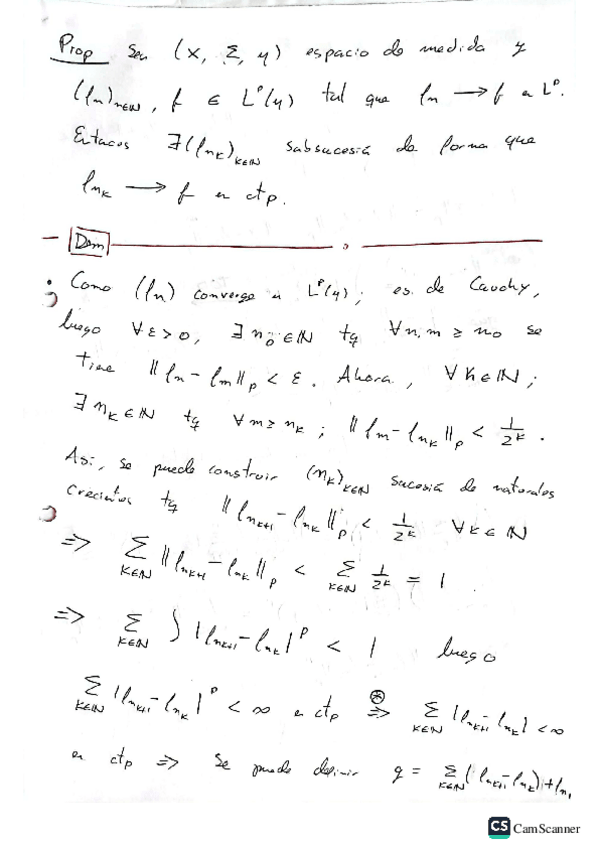 Prop Sea (X, Σ, μ) espacio de medida y
(fn)n∈ℕ, f ∈ L^p(μ) tal que fn → f en L^p.
Entonces ∃(fn_k)k∈ℕ subsucesión de forma que
fn_k → f en ctp.
Dem
• Como (fn) converge en L^p(μ); es de Cauchy,
luego ∀ε>0, ∃n₀∈ℕ tq ∀n,m ≥ n₀ se
tiene ‖fn - fm‖_p < ε. Ahora, ∀k∈ℕ;
∃n_k∈ℕ tq ∀m≥n_k; ‖fm - fn_k‖_p < 1/2^k.
Así, se puede construir (n_k)k∈ℕ sucesión de naturales
crecientes tq ‖fn_{k+1} - fn_k‖_p < 1/2^k ∀k∈ℕ
⇒ Σ_{k∈ℕ} ‖fn_{k+1} - fn_k‖_p < Σ_{k∈ℕ} 1/2^k = 1.
⇒ Σ_{k∈ℕ} ∫|fn_{k+1} - fn_k|^p < 1 luego
Σ_{k∈ℕ} |fn_{k+1} - fn_k|^p < ∞ en ctp ⊛⇒ Σ_{k∈ℕ} |fn_{k+1} - fn_k| < ∞
en ctp ⇒ Se puede definir g = Σ_{k∈ℕ} (fn_{k+1} - fn_k) + fn_1
CS CamScanner